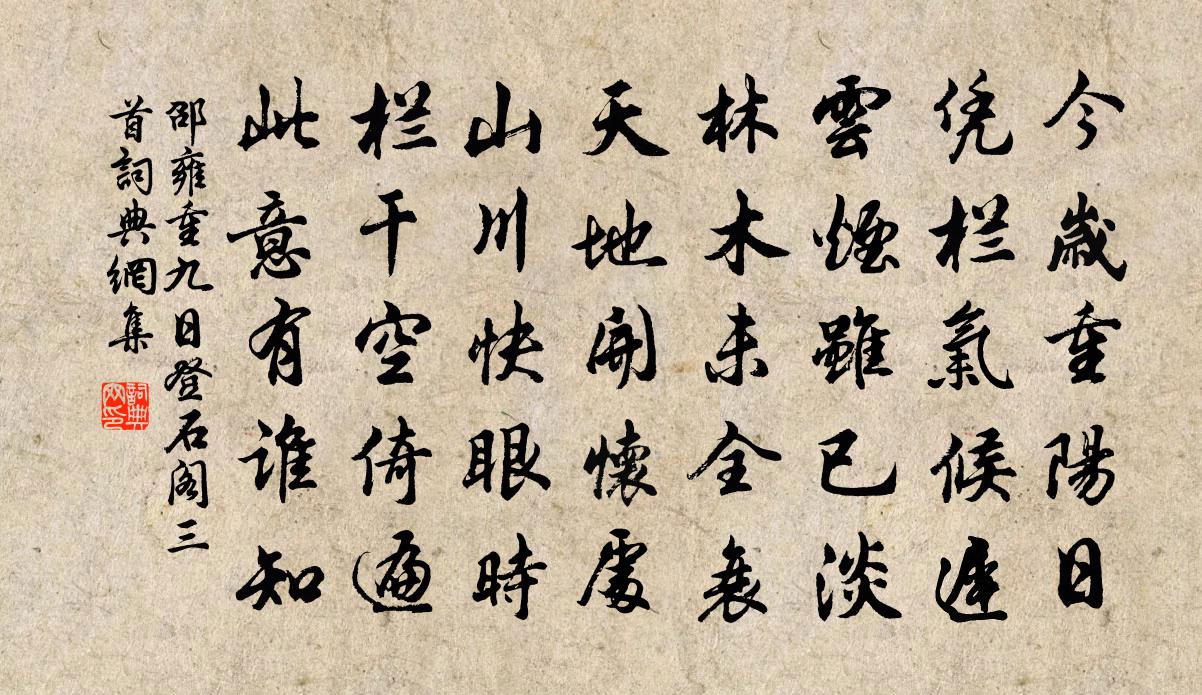 今歲重陽日
凭栏氣候遲
雲煙雖已淡
林木未全衰
天地開懷處
山川快眼時
栏干空倚遍
此意有誰知
邵雍重九日登石阁三
首詞典網集
詞典网印